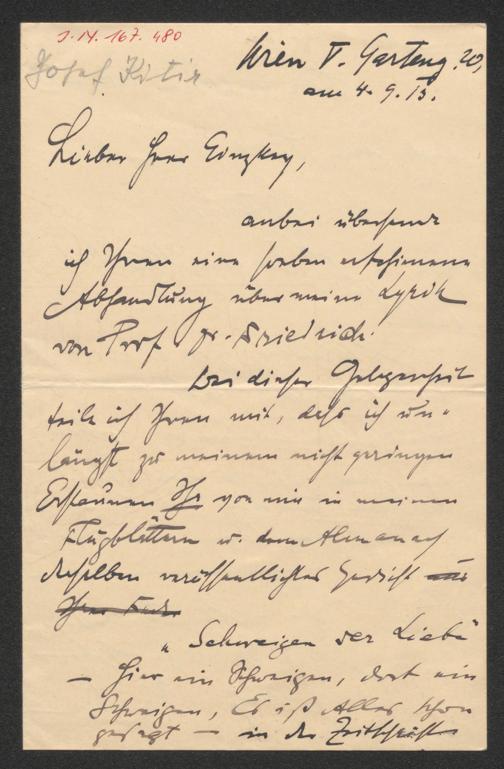 J.N. 167.480
Josef Kitir
Wien V. Garteng. 20,
am 4. 9. 15.
Lieber Herr Ginzkey,
anbei übersende
ich Ihnen eine soeben erschienene
Abhandlung über meine Lyrik
von Prof Dr. Friedrich.
Bei dieser Gelegenheit
teile ich Ihnen mit, daß ich un-
längst zu meinem nicht geringen
Erstaunen Ihr von mir in meinen
Flugblättern u. dem Almanach
derselben veröffentlichtes Gedicht aus
Ihrer
„Schweigen der Liebe"
– Hier ein Schweigen, dort ein
Schweigen, Es ist Alles schon
gesagt – in der Zeitschrift